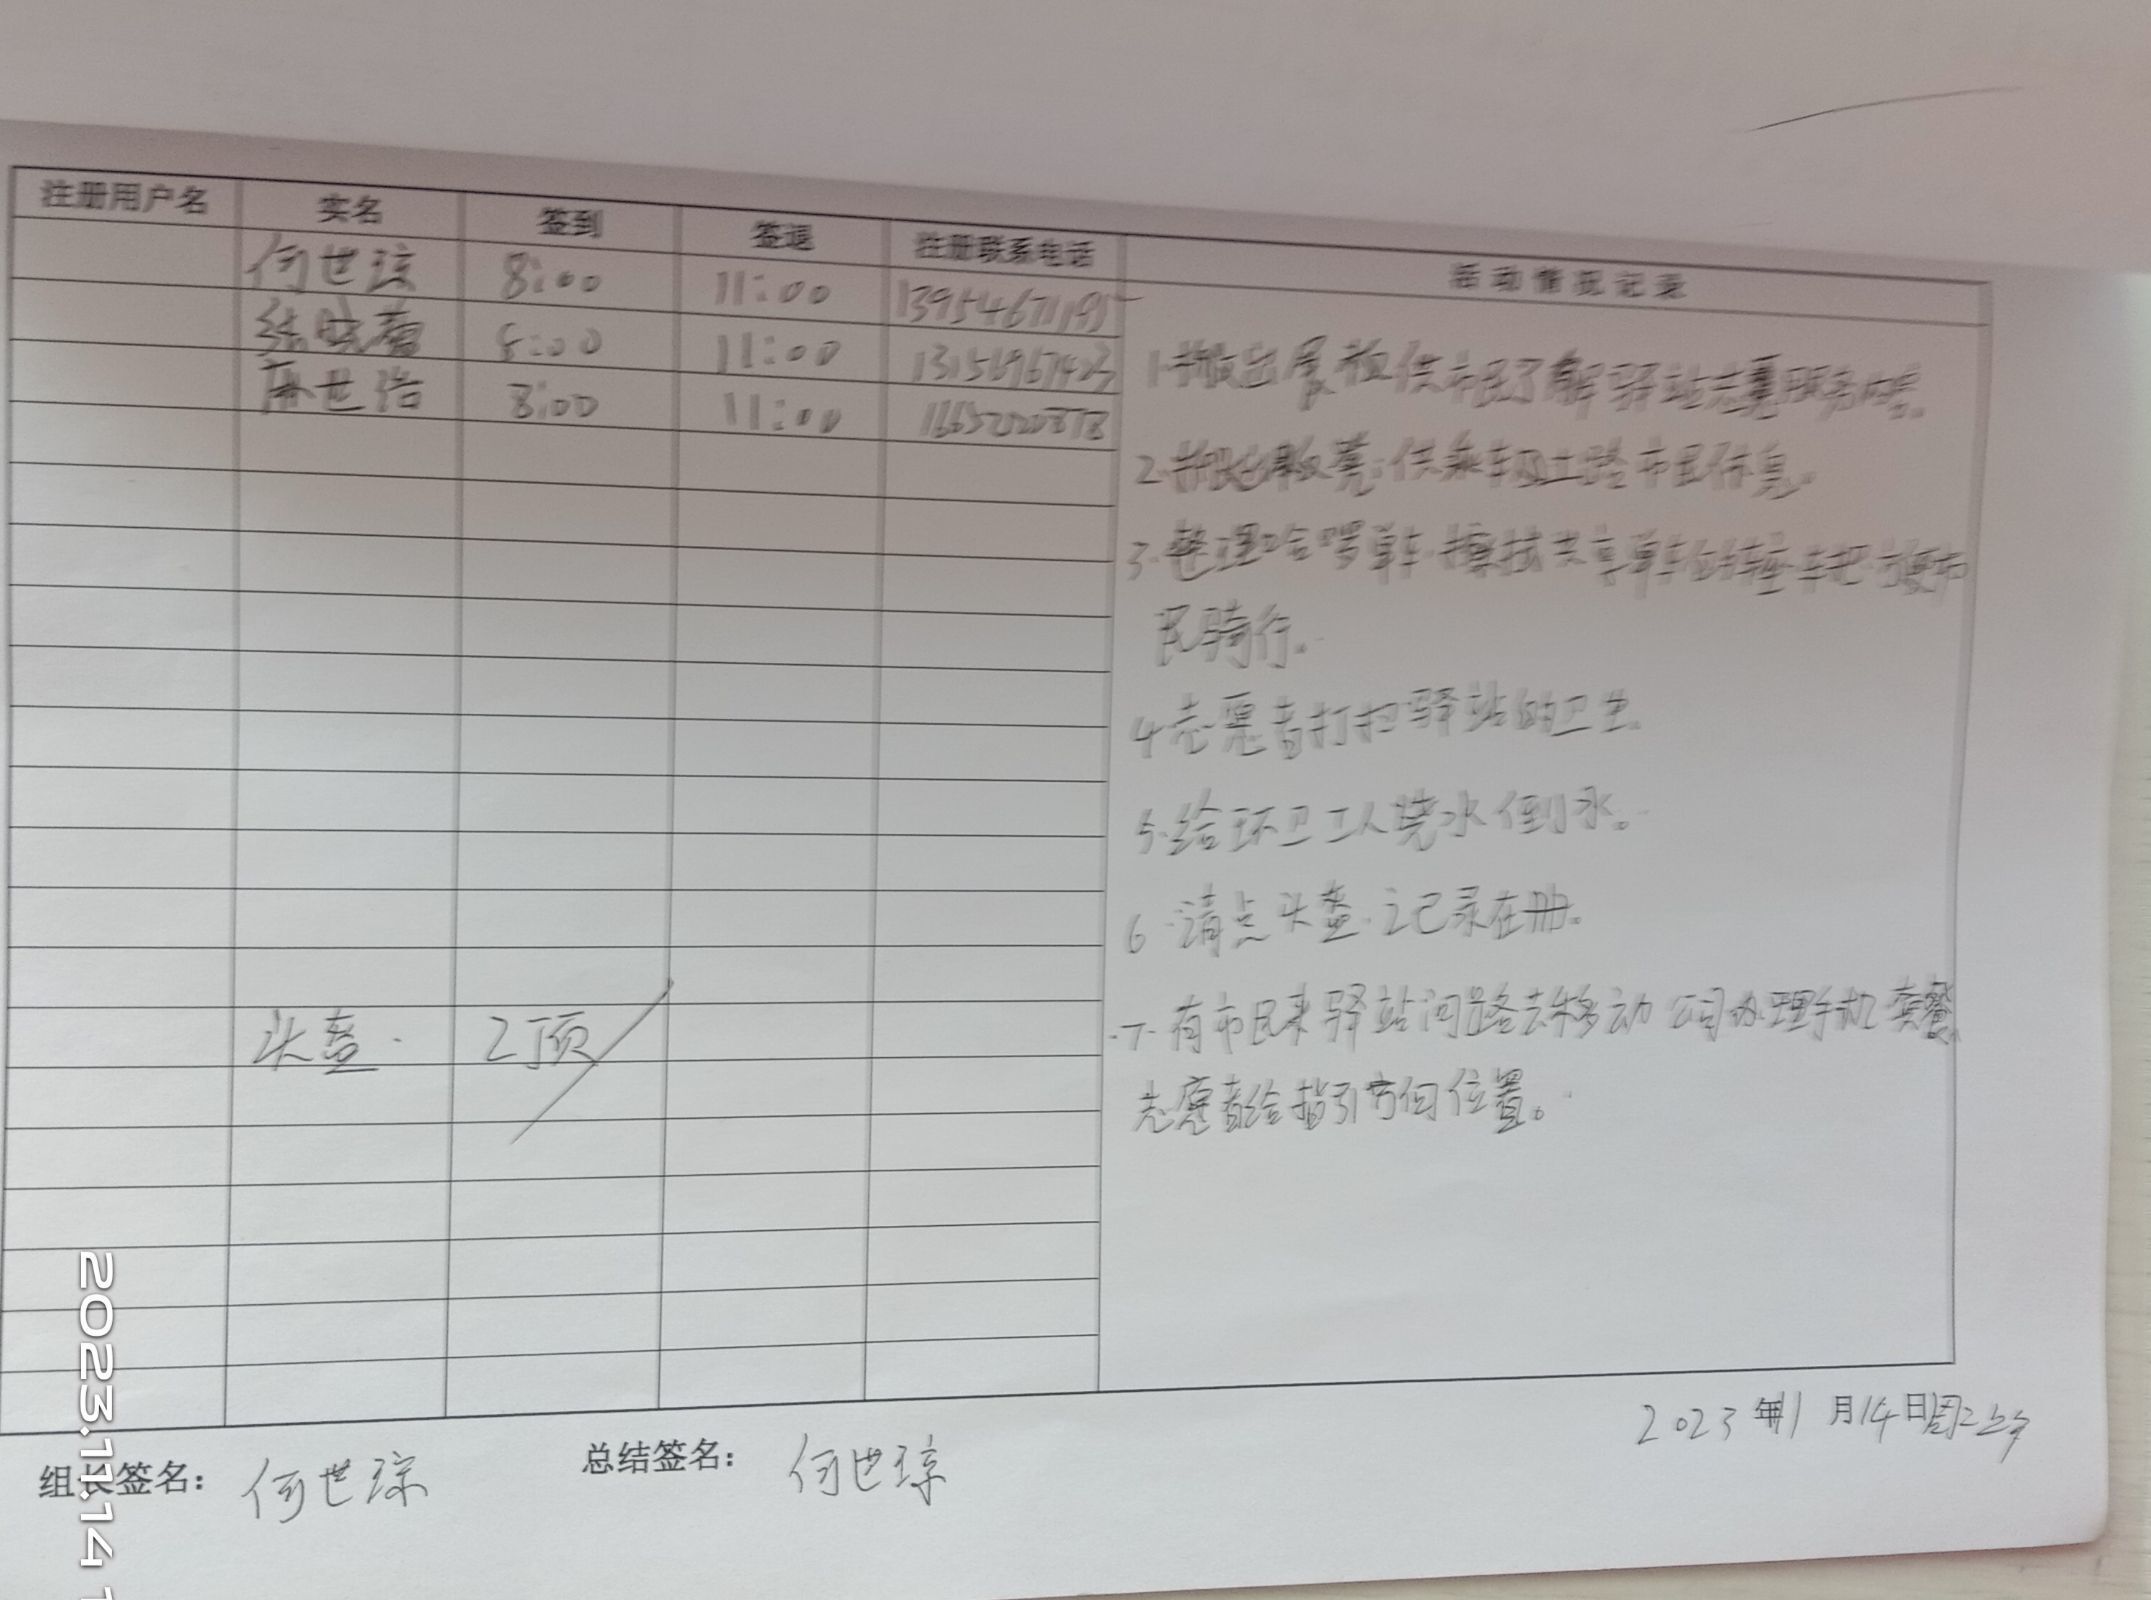 注册用户名 实名 签到 签退 注册联系电话 活动情况记录
何世琼 8:00 11:00
8:00 11:00
世浩 8:00 11:00
1.搬出展板供市民了解驿站志愿服务内容。
2.搬出板凳.供乘车及走路市民休息.
3.整理哈啰单车.擦拭共享单车的车座车把方便市
民骑行.
4.志愿者打扫驿站的卫生.
5.给环卫工人烧水倒水。
6.清点头盔.记录在册.
7.有市民来驿站问路去移动公司办理手机套餐.
志愿者给指引方向位置。
头盔. 2顶
2023年11月14日周二上午
组长签名: 何世琼 总结签名: 何世琼
2023.11.14 1